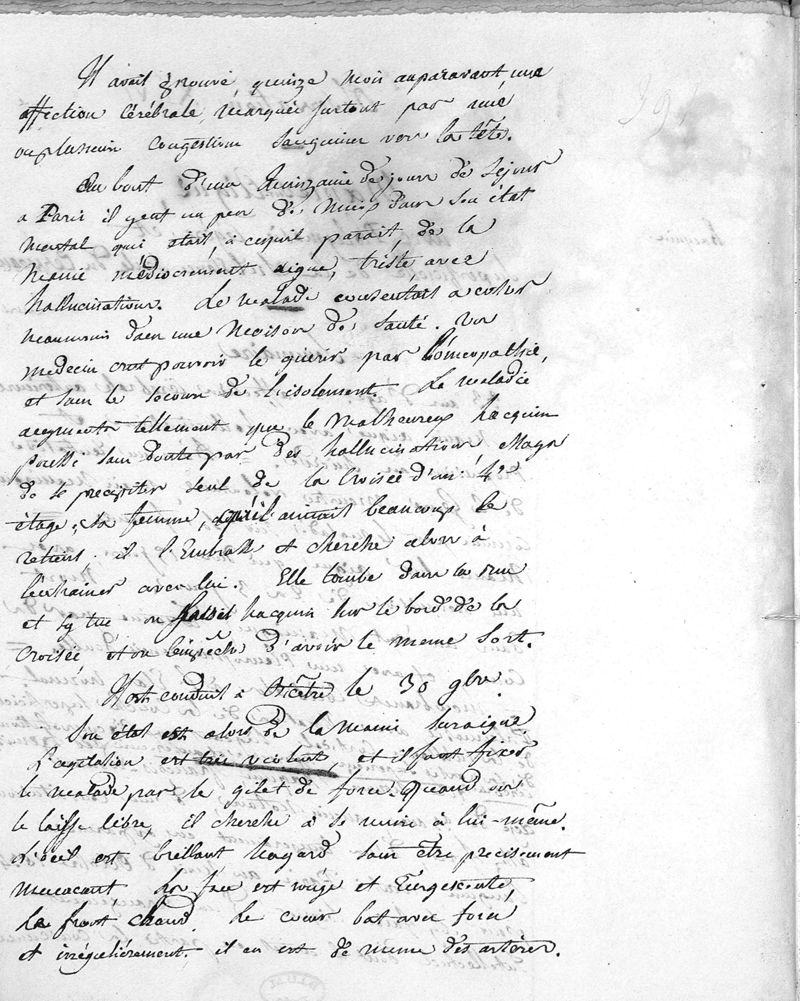 Il avait éprouvé, quinze mois auparavant une
affection Cérébrale, marquée surtout par une
ou plusieurs congestions sanguines vers la tête.
Au bout d'une quinzaine de jours de séjour
a Paris il y eut un peu de mieux dans son état
mental qui était, à ce qu'il parait, de la
manie médiocrement aigue, triste avec
hallucinations. Le malade consentait a entrer
neanmoins dans une Maison de santé. Un
medecin crut pouvoir le guérir par l'omeopathie,
et sans le secours de l'isolement. La maladie
augmenta tellement que le malheureux hacquin
poussé sans doute par des hallucinations
de se precipiter seul de la Croisée d'un 4e
étage; sa femme, qu'il aimait beaucoup le
retient; il l'embrasse et cherche alors à
l'entrainer avec lui. Elle tombe dans la rue
et s'y tue on saisit hacquin sur le bord de la
croisée, et on l'empêche d'avoir le meme sort.
Il est conduit à Bicêtre le 30 9bre.
Son état est alors de la manie suraigue
L'agitation est très violente, et il faut fixer
le malade par le gilet de force. Quand on
le laisse libre, il cherche à se nuire à lui-même.
L'oeil est brillant hagard sans être precisement
menacant, la face est rouge et turgescente,
le front chaud. Le coeur bat avec force
et irrégulièrement. il en est de meme des artères.